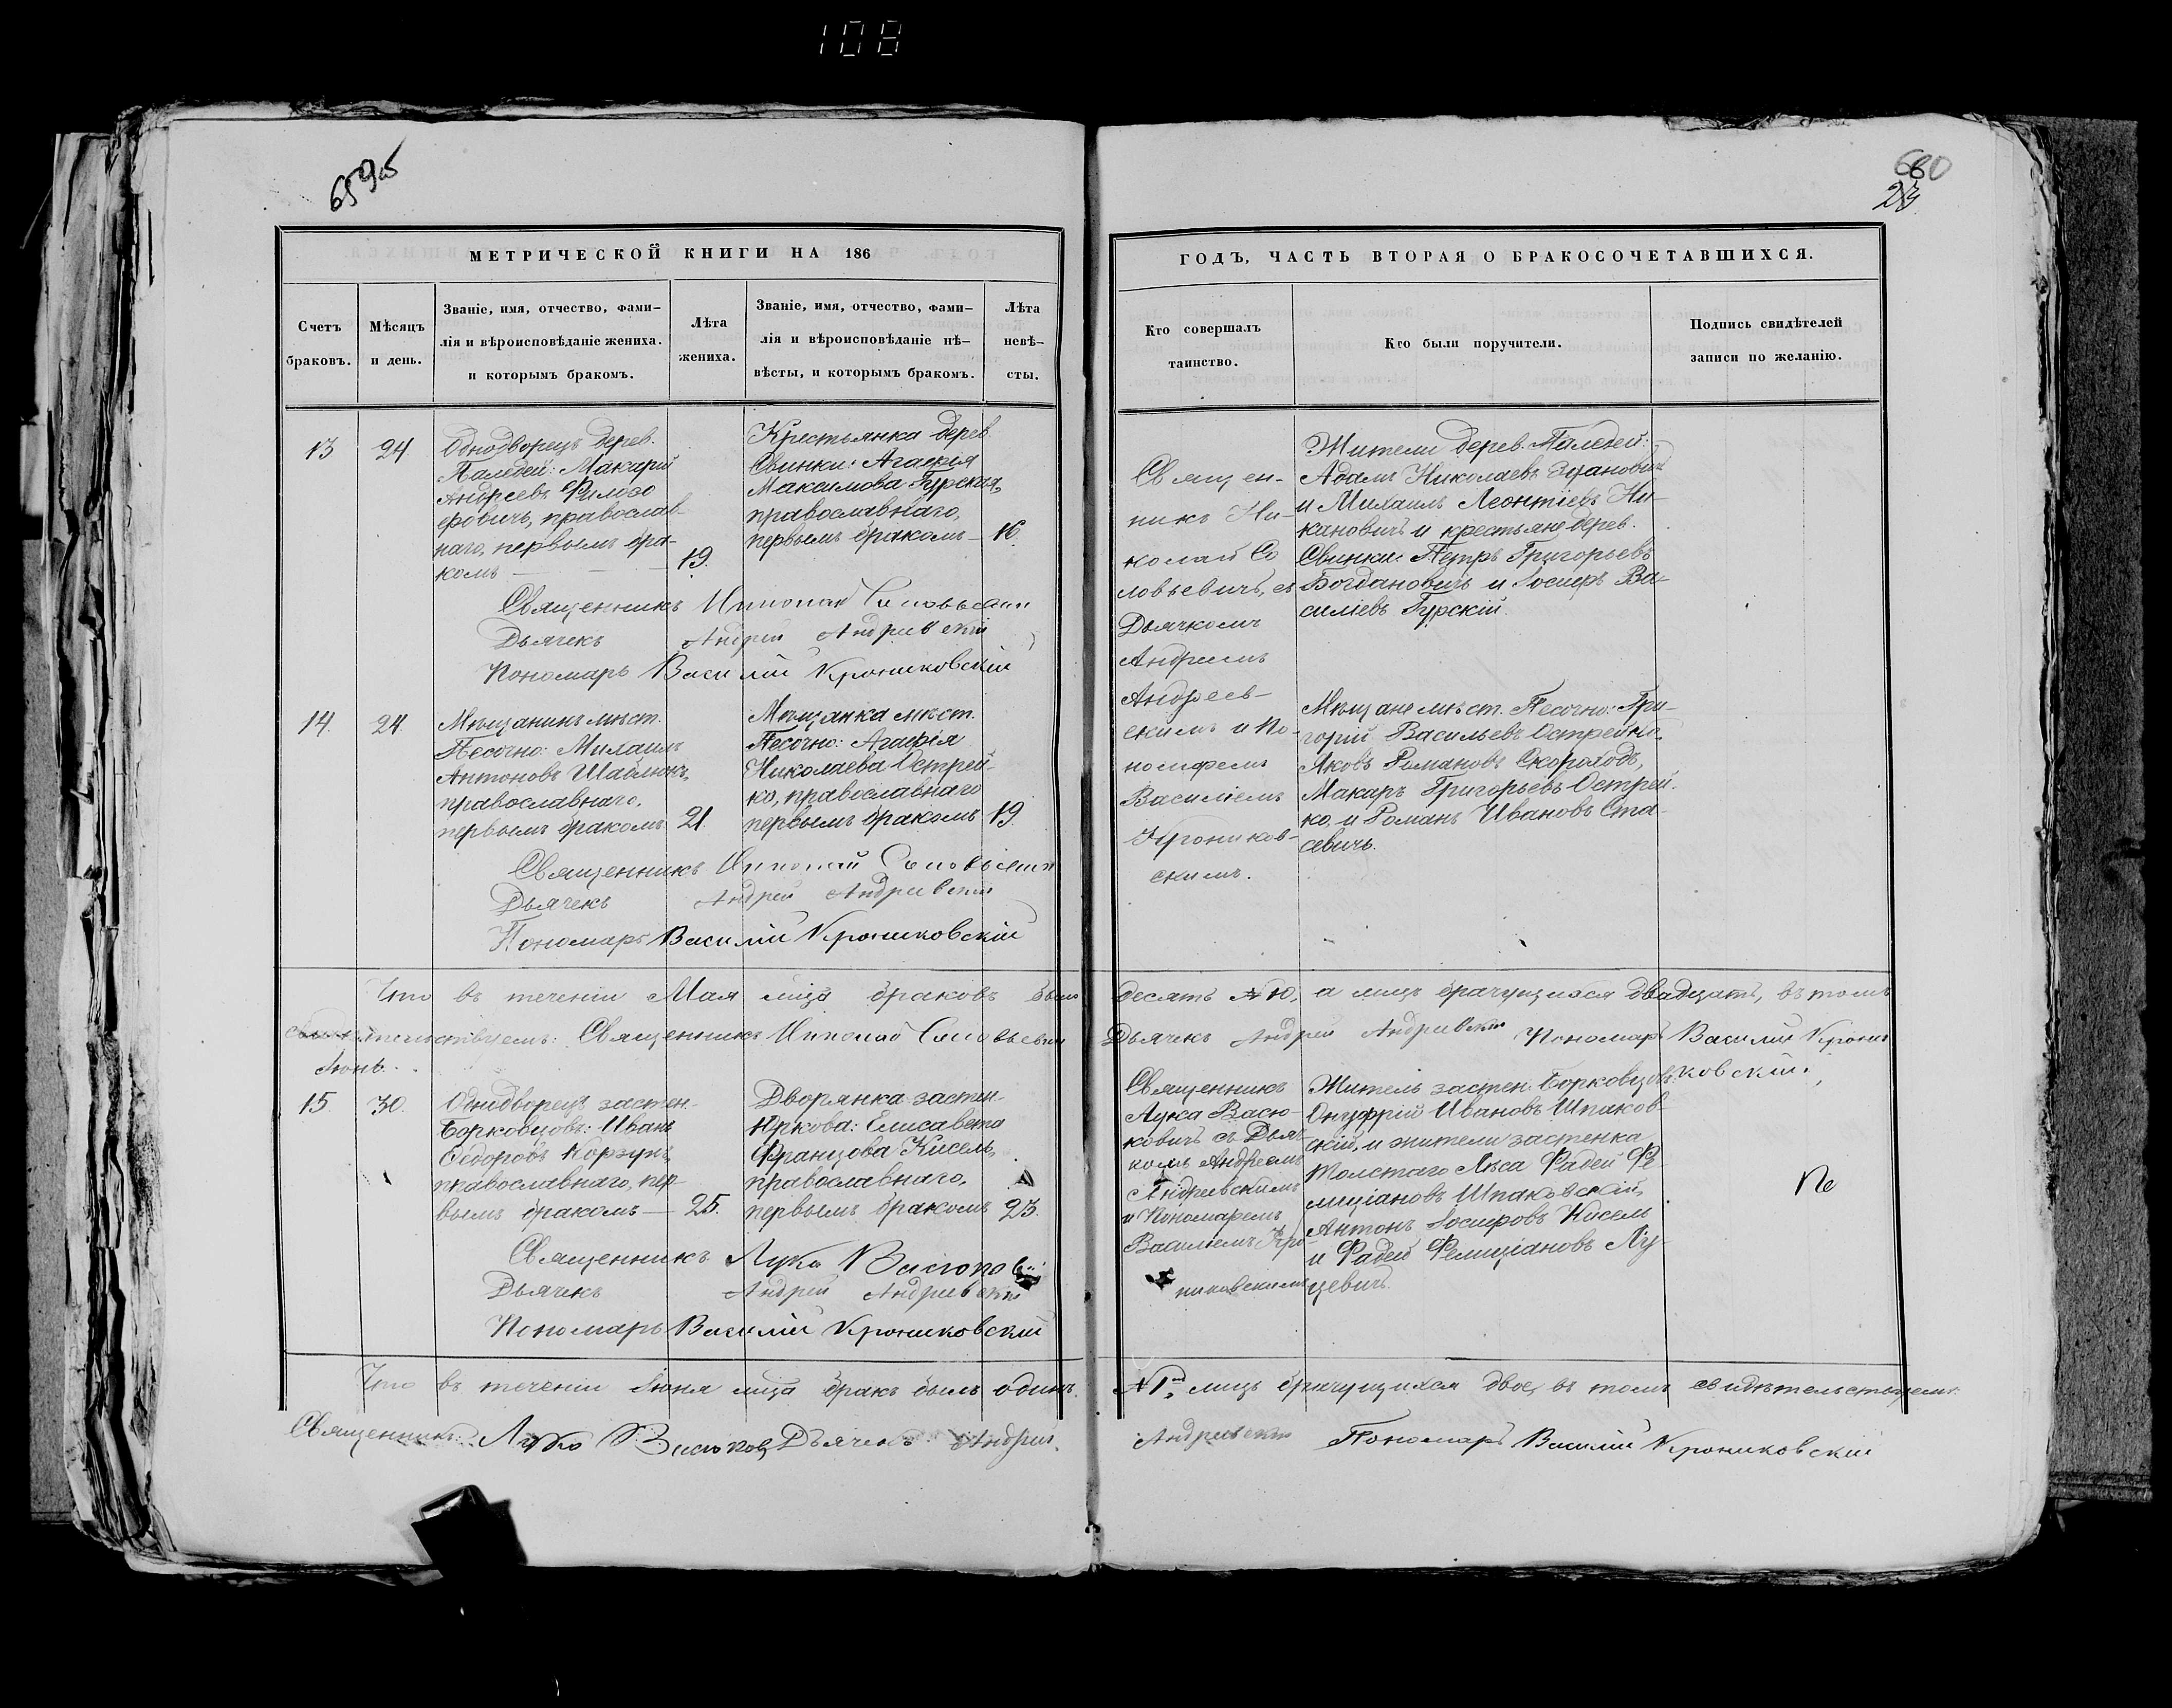 108
659об
660
23
МЕТРИЧЕСКОЙ КНИГИ НА 186
Счетъ браковъ.
Мѣсяцъ и день.
Званіе, имя, отчество, фами-
лія и вѣроисповѣданіе жениха.
и которымъ бракомъ.
Лѣта жениха.
Званіе, имя, отчество, фами-
лія и вѣроисповѣданіе нѣ-
вѣсты, и которымъ бракомъ.
Лѣта невѣ-
сты.
13
24
Однодворецъ дерев.
Андреевъ Филосо
фовичъ, православ-
наго, первымъ бра-
комъ —
19.
Крестьянка дерев
Свинки: Агафія
Максимова Гурская,
православнаго,
первымъ бракомъ —
16.
Священникъ Николай Соловьевич
Дьячекъ Андрей Андриевскій
Пономарь Василій Крониковскій
14.
24.
Мѣщанинъ мѣст.
Песочно: Михаилъ
Антоновъ Шаблюкъ,
православнаго,
первымъ бракомъ
21.
Мѣщанка мѣст.
Песочно: Агафія
Николаева Острей-
ко, православнаго
первымъ бракомъ
19.
Священникъ Николай Соловьевич
Дьячекъ Андрей Андриевскій
Пономарь Василій Крониковскій
Что въ теченіи Мая мца браковъ было
свидѣтельствуемъ: Священникъ Николай Соловьевич
Іюнь.
15.
30.
Однодворецъ застен.
Борковцовъ: Иванъ
Ѳедоровъ Корзунъ,
православнаго, пер-
вымъ бракомъ —
25.
Дворянка застен.
Юркова: Елисавета
Францова Кисель,
православнаго,
первымъ бракомъ
23.
Священникъ Лука
Дьячекъ Андрей Андриевскій
Пономарь Василій Крониковскій
Что въ теченіи Іюня мца бракъ былъ одинъ.
Священникъ Лука Дьячекъ Андрей
ГОДЪ, ЧАСТЬ ВТОРАЯ О БРАКОСОЧЕТАВШИХСЯ.
Кто совершалъ
таинство.
Кто были поручители.
Подпись свидѣтелей
записи по желанію.
Священ-
никъ Ни-
колай Со
ловьевичъ, съ
Дьячкомъ
Андреемъ
Андреев-
скимъ и По-
номаремъ
Василіемъ
Кроников-
скимъ.
Адамъ Николаевъ
и Михаилъ Леонтіевъ Ни-
кановичъ и крестьяне дерев.
Свинки: Петръ Григорьевъ
Богдановичъ и Іосифъ Ва-
силіевъ Гурскій.
Мѣщане мѣст. Песочно: Гри-
горій Васильевъ Острейко,
Яковъ Романовъ Скороходъ,
Макаръ Григорьевъ Острей-
ко, и Романъ Ивановъ Ста-
севичъ.
десять №10, а лицъ брачущихся двадцать, въ томъ
Дьячекъ Андрей Андриевскій Пономарь Василій Крони
ковскій.
Священникъ
Лука Васю-
ковичъ съ Дьяч-
комъ Андреемъ
Андриевскимъ
и Пономаремъ
Василіемъ Кро-
никовскимъ
Житель застен. Борковцовъ:
Онуфрій Ивановъ Шпаков-
скій, и жители застенка
Толстаго Лѣса Фадей Фе-
лиціановъ Шпаковскій,
Антонъ Іосифовъ Кисель
и Фадей Фелиціановъ Лу-
цевичъ.
№1й лицъ брачущихся двое, въ томъ свидѣтельствуемъ:
Андриевскій Пономарь Василій Крониковскій